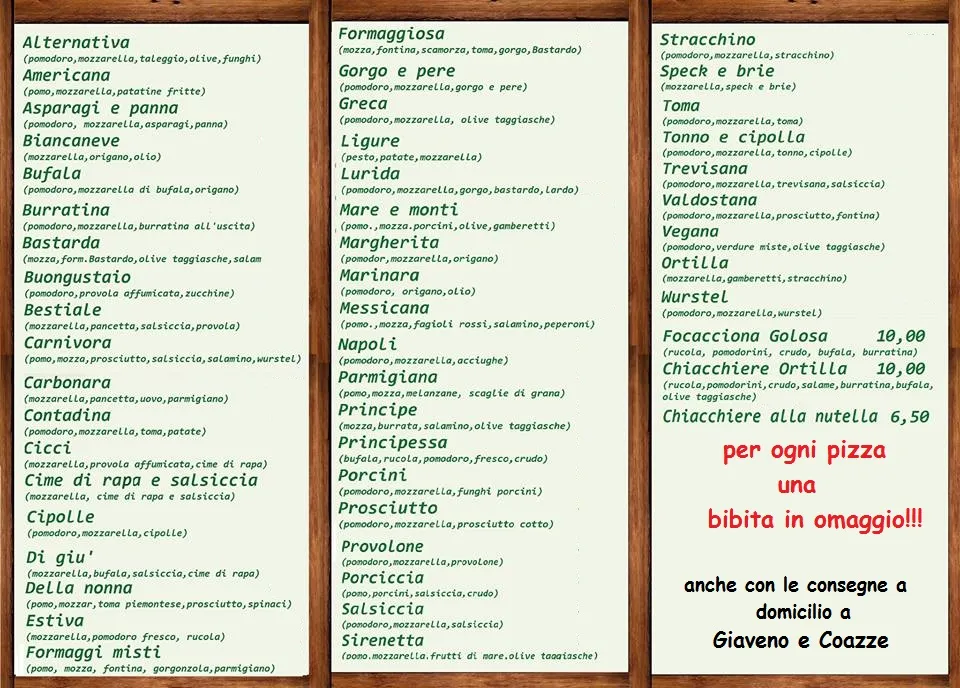 Alternativa
(pomodoro,mozzarella,taleggio,olive,funghi)
Americana
(pomo,mozzarella,patatine fritte)
Asparagi e panna
(pomodoro, mozzarella,asparagi,panna)
Biancaneve
(mozzarella,origano,olio)
Bufala
(pomodoro,mozzarella di bufala,origano)
Burratina
(pomodoro,mozzarella,burratina all'uscita)
Bastarda
(mozza,form.Bastardo,olive taggiasche,salam
Buongustaio
(pomodoro,provola affumicata,zucchine)
Bestiale
(mozzarella,pancetta,salsiccia,provola)
Carnivora
(pomo,mozza,prosciutto,salsiccia,salamino,wurstel)
Carbonara
(mozzarella,pancetta,uovo,parmigiano)
Contadina
(pomodoro,mozzarella,toma,patate)
Cicci
(mozzarella,provola affumicata,cime di rapa)
Cime di rapa e salsiccia
(mozzarella, cime di rapa e salsiccia)
Cipolle
(pomodoro,mozzarella,cipolle)
Di giu'
(mozzarella,bufala,salsiccia,cime di rapa)
Della nonna
(pomo,mozzar,toma piemontese,prosciutto,spinaci)
Estiva
(mozzarella,pomodoro fresco, rucola)
Formaggi misti
(pomo, mozza, fontina, gorgonzola,parmigiano)
Formaggiosa
(mozza,fontina,scamorza,toma,gorgo,Bastardo)
Gorgo e pere
(pomodoro,mozzarella,gorgo e pere)
Greca
(pomodoro,mozzarella, olive taggiasche)
Ligure
(pesto,patate,mozzarella)
Lurida
(pomodoro,mozzarella,gorgo,bastardo,lardo)
Mare e monti
(pomo.,mozza.porcini,olive,gamberetti)
Margherita
(pomodor,mozzarella,origano)
Marinara
(pomodoro, origano,olio)
Messicana
(pomo.,mozza,fagioli rossi,salamino,peperoni)
Napoli
(pomodoro,mozzarella,acciughe)
Parmigiana
(pomo,mozza,melanzane, scaglie di grana)
Principe
(mozza,burrata,salamino,olive taggiasche)
Principessa
(bufala,rucola,pomodoro,fresco,crudo)
Porcini
(pomodoro,mozzarella,funghi porcini)
Prosciutto
(pomodoro,mozzarella,prosciutto cotto)
Provolone
(pomodoro,mozzarella,provolone)
Porciccia
(pomo,porcini,salsiccia,crudo)
Salsiccia
(pomodoro,mozzarella,salsiccia)
Sirenetta
(pomo.mozzarella.frutti di mare.olive taggiasche)
Stracchino
(pomodoro,mozzarella,stracchino)
Speck e brie
(mozzarella,speck e brie)
Toma
(pomodoro,mozzarella,toma)
Tonno e cipolla
(pomodoro,mozzarella,tonno,cipolle)
Trevisana
(pomodoro,mozzarella,trevisana,salsiccia)
Valdostana
(pomodoro,mozzarella,prosciutto,fontina)
Vegana
(pomodoro,verdure miste,olive taggiasche)
Ortilla
(mozzarella,gamberetti,stracchino)
Wurstel
(pomodoro,mozzarella,wurstel)
Focacciona Golosa 10,00
(rucola, pomodorini, crudo, bufala, burratina)
Chiacchiere Ortilla 10,00
(rucola,pomodorini,crudo,salame,burratina,bufala,
olive taggiasche)
Chiacchiere alla nutella 6,50
per ogni pizza
una
bibita in omaggio!!!
anche con le consegne a
domicilio a
Giaveno e Coazze